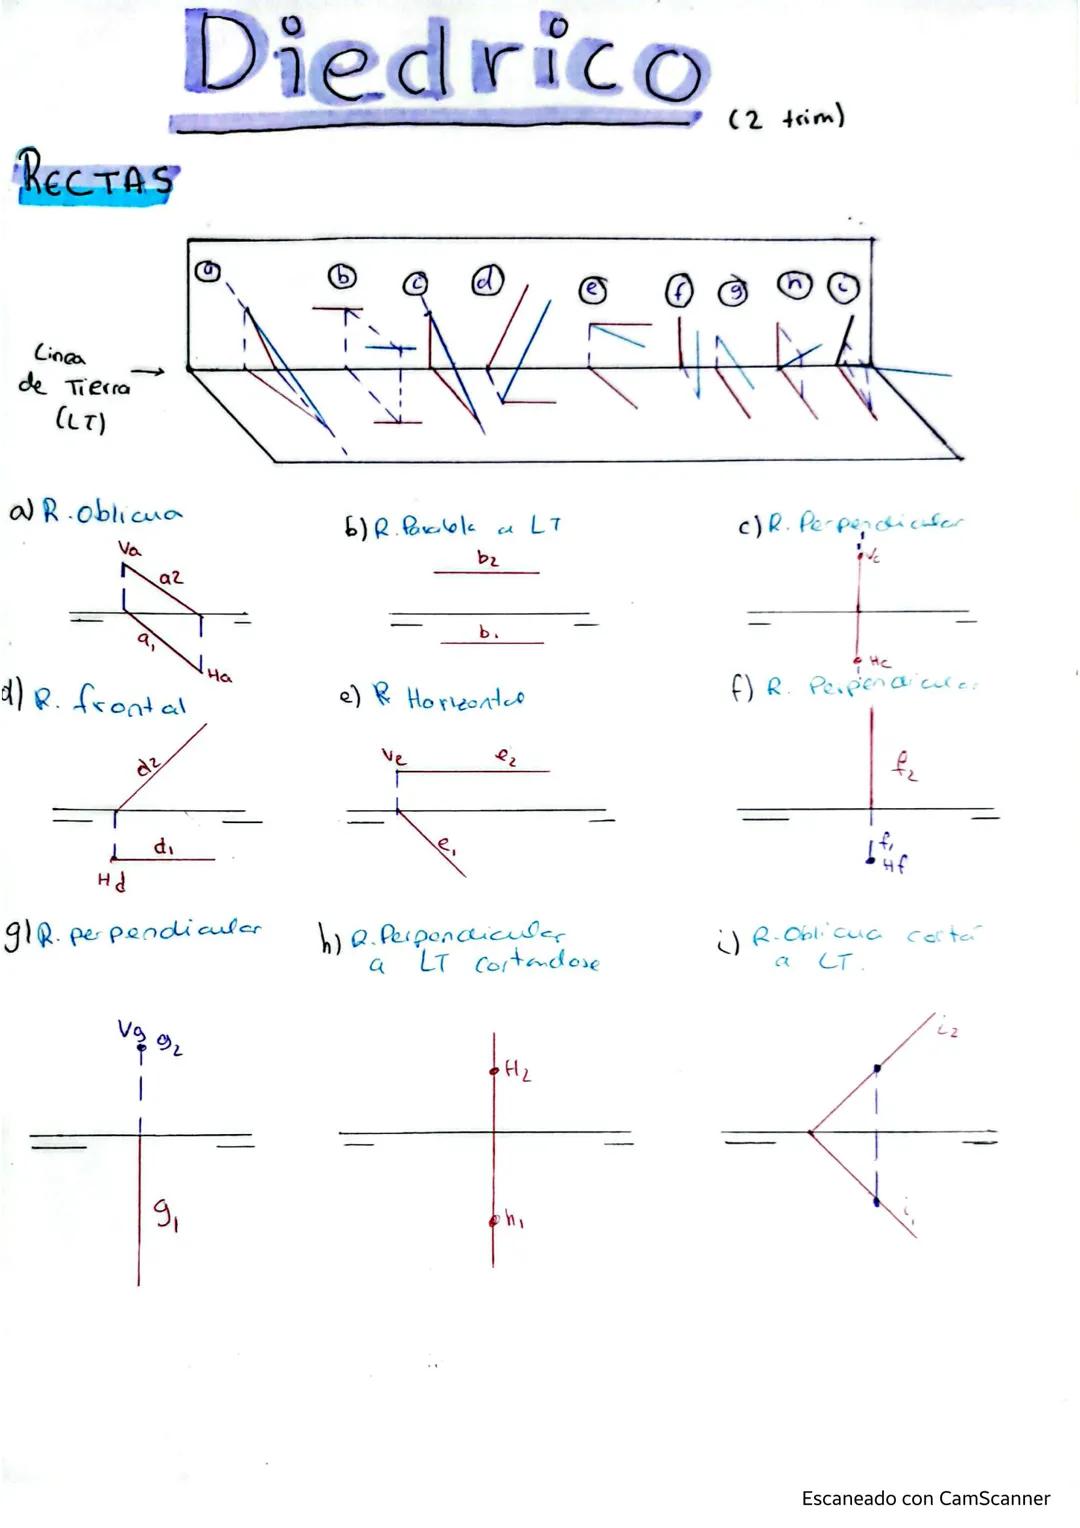 Diedrico
(2 trim)
RECTAS
a b c d e f g h i
Linea
de Tierra
(LT)
a) R. oblicua
b) R. Paralela a LT
c) R. Perpendicular
Va
a2
a1
Ha
b2
b1
Vc
Hc
d) R. frontal
e) R Horizontal
f) R. Perpendicular
d2
d1
Hd
Ve
e2
e1
f2
f1
Hf
g) R. perpendicular
h) R. Perpendicular
a LT cortandose
i) R. Oblicua corta
a LT.
Vg g2
g1
H2
h1
i2
i1
Escaneado con CamScanner